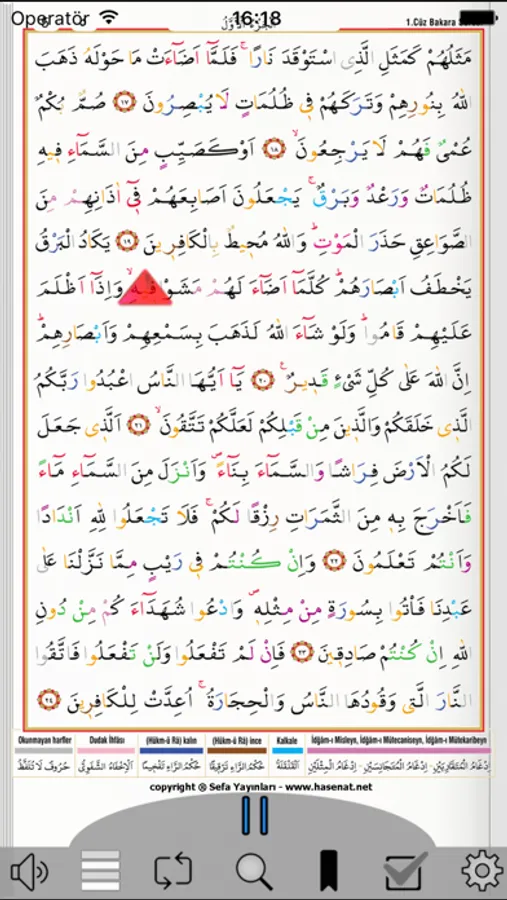 Operatör 16:18
1.Cüz Bakara
مَثَلُهُمْ كَمَثَلِ الَّذِى اسْتَوْقَدَ نَارًاۚ فَلَمَّٓا اَضَٓاءَتْ مَا حَوْلَهُ ذَهَبَ
اللّٰهُ بِنُورِهِمْ وَتَرَكَهُمْ فٖى ظُلُمَاتٍ لَا يُبْصِرُونَ ﴿١٧﴾ صُمٌّ بُكْمٌ
عُمْىٌ فَهُمْ لَا يَرْجِعُونَۙ ﴿١٨﴾ اَوْ كَصَيِّبٍ مِنَ السَّمَٓاءِ فٖيهِ
ظُلُمَاتٌ وَرَعْدٌ وَبَرْقٌۚ يَجْعَلُونَ اَصَابِعَهُمْ فٖٓى اٰذَانِهِمْ مِنَ
الصَّوَاعِقِ حَذَرَ الْمَوْتِؕ وَاللّٰهُ مُحٖيطٌ بِالْكَافِرٖينَ ﴿١٩﴾ يَكَادُ الْبَرْقُ
يَخْطَفُ اَبْصَارَهُمْؕ كُلَّمَٓا اَضَٓاءَ لَهُمْ مَشَوْا فٖيهِۙ وَاِذَٓا اَظْلَمَ
عَلَيْهِمْ قَامُواؕ وَلَوْ شَٓاءَ اللّٰهُ لَذَهَبَ بِسَمْعِهِمْ وَاَبْصَارِهِمْؕ
اِنَّ اللّٰهَ عَلٰى كُلِّ شَىْءٍ قَدٖيرٌۚ ﴿٢٠﴾ يَٓا اَيُّهَا النَّاسُ اعْبُدُوا رَبَّكُمُ
الَّذٖى خَلَقَكُمْ وَالَّذٖينَ مِنْ قَبْلِكُمْ لَعَلَّكُمْ تَتَّقُونَۙ ﴿٢١﴾ اَلَّذٖى جَعَلَ
لَكُمُ الْاَرْضَ فِرَاشًا وَالسَّمَٓاءَ بِنَٓاءًۖ وَاَنْزَلَ مِنَ السَّمَٓاءِ مَٓاءً
فَاَخْرَجَ بِهٖ مِنَ الثَّمَرَاتِ رِزْقًا لَكُمْۚ فَلَا تَجْعَلُوا لِلّٰهِ اَنْدَادًا
وَاَنْتُمْ تَعْلَمُونَ ﴿٢٢﴾ وَاِنْ كُنْتُمْ فٖى رَيْبٍ مِمَّا نَزَّلْنَا عَلٰى
عَبْدِنَا فَأْتُوا بِسُورَةٍ مِنْ مِثْلِهٖ وَادْعُوا شُهَدَٓاءَكُمْ مِنْ دُونِ
اللّٰهِ اِنْ كُنْتُمْ صَادِقٖينَ ﴿٢٣﴾ فَاِنْ لَمْ تَفْعَلُوا وَلَنْ تَفْعَلُوا فَاتَّقُوا
النَّارَ الَّتٖى وَقُودُهَا النَّاسُ وَالْحِجَارَةُۚ اُعِدَّتْ لِلْكَافِرٖينَ ﴿٢٤﴾
Okunmayan harfler Dudak İhfâsı (Hükm-ü Râ) kalın (Hükm-ü Râ) ince Kalkale İdğâm-ı Misleyn, İdğâm-ı Mütecaniseyn, İdğâm-ı Mütekaribeyn
copyright ® Sefa Yayınları - www.hasenat.net